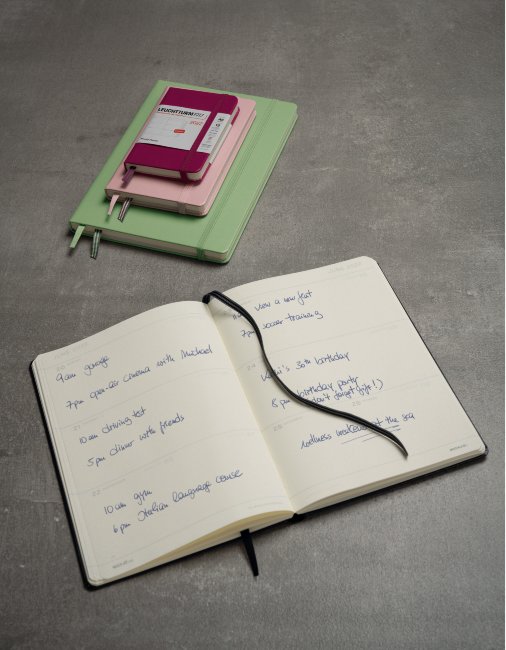 LEUCHTTURM1917
2022
20
9am garage
7pm open-air cinema with Michael
21
10am driving test
5pm dinner with friends
22
10am gym
6pm Italian language course
view a new flat
7pm soccer training
24
's 30th birthday
8pm birthday party
(don't forget gift!)
25
26
wellness weekend at the sea